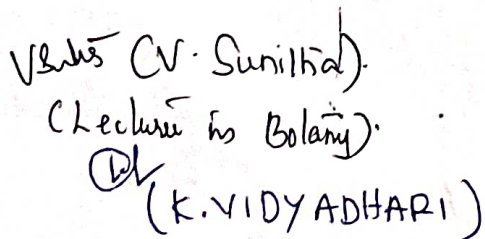 (V. Sunitha).
(Lecturer in Botany).
(K. VIDYADHARI)